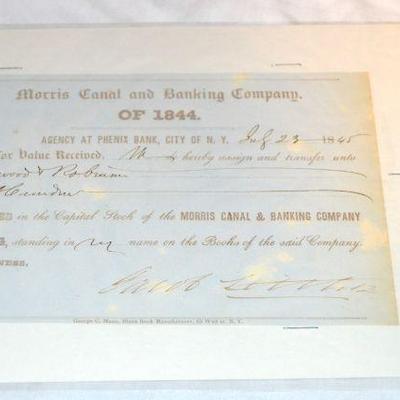 Morris Canal and Banking Company.
OF 1844.
AGENCY AT PHENIX BANK, CITY OF N. Y. July 23 1845
for Value Received, hereby assign and transfer unto
wood & Robinson
Hundred
ED in the Capital Stock of the MORRIS CANAL & BANKING COMPANY
, standing in my name on the Books of the said Company.
NESS.
Jacob Little & Co
George C. Mann, Blank Book Manufacturer, St. N. Y.